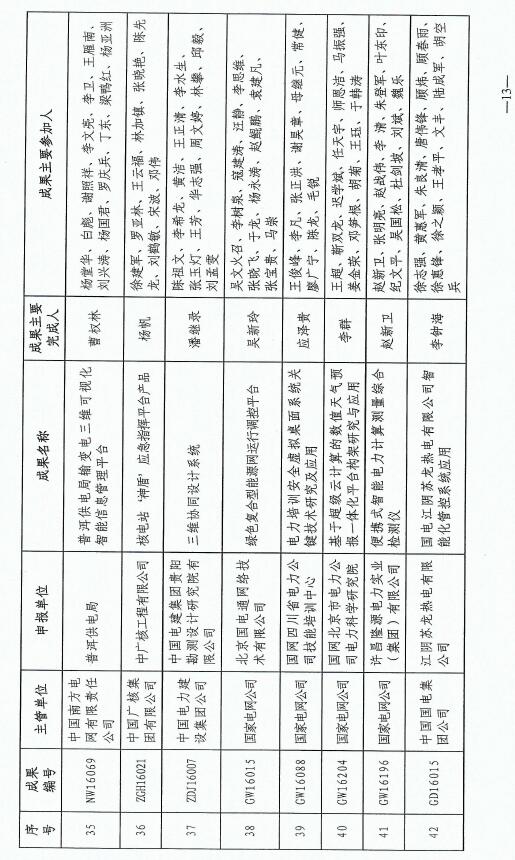 序号
成果编号
主管单位
申报单位
成果名称
成果主要完成人
成果主要参加人
35
NW16069
中国南方电网有限责任公司
普洱供电局
普洱供电局输变电三维可视化智能信息管理平台
曹权林
杨堂华、白彪、谢照祥、李文亮、李卫、王雁南、
刘兴涛、杨国君、罗庆兵、丁东、梁鸭红、杨亚洲
36
ZGH16021
中国广核集团有限公司
中广核工程有限公司
核电站“神盾”应急指挥平台产品
杨帆
徐建军、罗亚林、王云福、林加镇、张晓艳、陈先
龙、刘鹤敏、宋波、邓伟
37
ZDJ16007
中国电力建设集团公司
中国电建集团贵阳勘测设计研究院有限公司
三维协同设计系统
潘继录
陈祖文、李希龙、黄洁、王正清、李水生、
张玉灯、王芳、华志强、周文婷、林攀、邱毅、
刘孟雯
38
GW16015
国家电网公司
北京国电通网络技术有限公司
绿色复合型能源网运行调控平台
吴新玲
吴文火召、李树泉、寇建涛、汪静、李思维、
张晓飞、于龙、杨永涛、赵鲲鹏、袁建凡、
张宝贵、马崇
39
GW16088
国家电网公司
国网四川省电力公司技能培训中心
电力培训安全虚拟桌面系统关键技术研究及应用
应泽贵
王俊峰、李凡、张正洪、谢昊章、母继元、常健、
廖广宁、陈龙、毛锐
40
GW16204
国家电网公司
国网北京市电力公司电力科学研究院
基于超级云计算的数值天气预报一体化平台构架研究与应用
李群
王超、靳双龙、迟学斌、任天宇、师恩洁、马振强、
姜金荣、邓笋根、胡菊、王珏、于韩涛
41
GW16196
国家电网公司
许昌隆源电力实业（集团）有限公司
便携式智能电力计算测量综合检测仪
赵新卫
赵新卫、张明亮、赵战伟、李清、朱登军、叶东印、
纪文平、吴国松、杜剑拔、刘斌、魏乐
42
GD16015
中国国电集团公司
江阴苏龙热电有限公司
国电江阴苏龙热电有限公司智能化管控系统应用
李钟海
徐志强、黄惠军、朱良清、唐伟锋、顾炜、顾春雨、
徐惠锋、徐之颖、王孝平、文丰、陆成军、胡空
兵
—13—